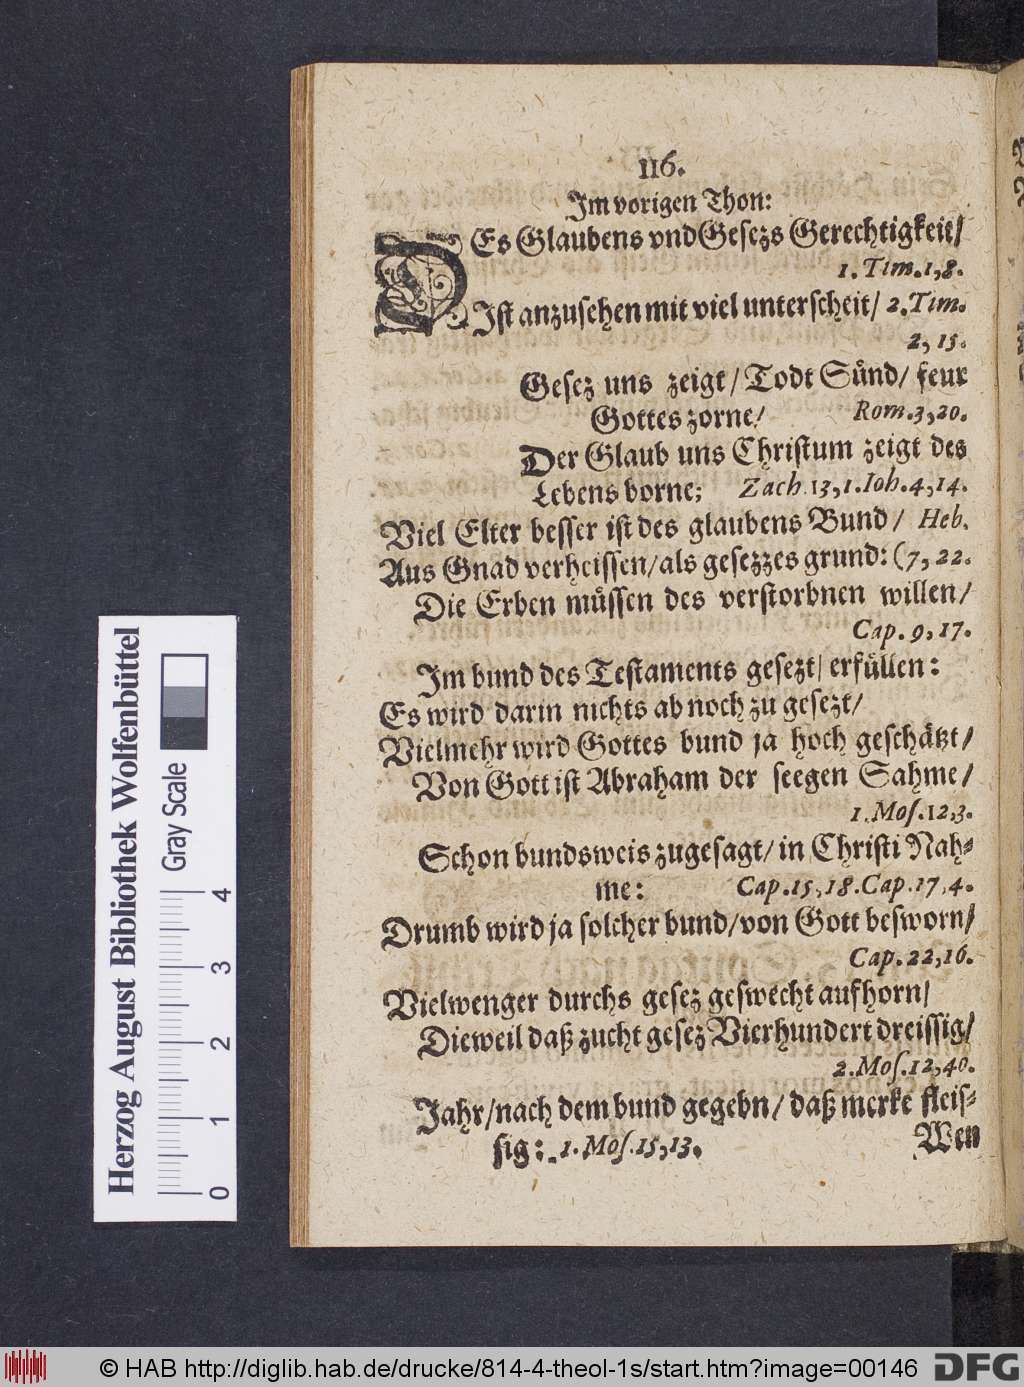 116.
Im vorigen Thon:
DEs Glaubens vnd Gesezs Gerechtigkeit/
1. Tim. 1, 8.
Ist anzusehen mit viel unterscheit/ 2. Tim.
2, 15.
Gesez uns zeigt/ Todt Sünd/ feur
Gottes zorne/ Rom. 3, 20.
Der Glaub uns Christum zeigt des
Lebens borne; Zach. 13, 1. Ioh. 4, 14.
Viel Elter besser ist des glaubens Bund/ Heb.
Aus Gnad verheissen/ als gesezzes grund: (7, 22.
Die Erben müssen des verstorbnen willen/
Cap. 9, 17.
Im bund des Testaments gesezt/ erfüllen:
Es wird darin nichts ab noch zu gesezt/
Vielmehr wird Gottes bund ja hoch geschätzt/
Von Gott ist Abraham der seegen Sahme/
1. Mos. 12, 3.
Schon bundsweis zugesagt/ in Christi Nah-
me: Cap. 15, 18. Cap. 17, 4.
Drumb wird ja solcher bund/ von Gott besworn/
Cap. 22, 16.
Vielwenger durchs gesez geswecht aufhorn/
Dieweil daß zucht gesez Vierhundert dreissig/
2. Mos. 12, 40.
Jahr/ nach dem bund gegebn/ daß merke fleis-
sig: 1. Mos. 15, 13.
Wen
Herzog August Bibliothek Wolfenbüttel
Gray Scale
0 1 2 3 4
© HAB http://diglib.hab.de/drucke/814-4-theol-1s/start.htm?image=00146
DFG